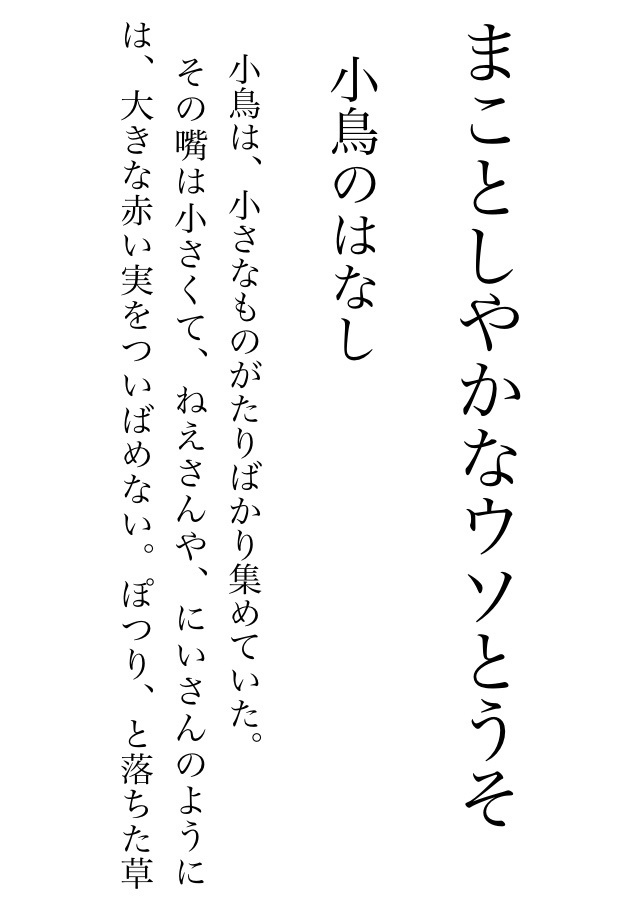 まことしやかなウソとうそ
小鳥のはなし
小鳥は、小さなものがたりばかり集めていた。
その嘴は小さくて、ねえさんや、にいさんのように
は、大きな赤い実をついばめない。ぽつり、と落ちた草